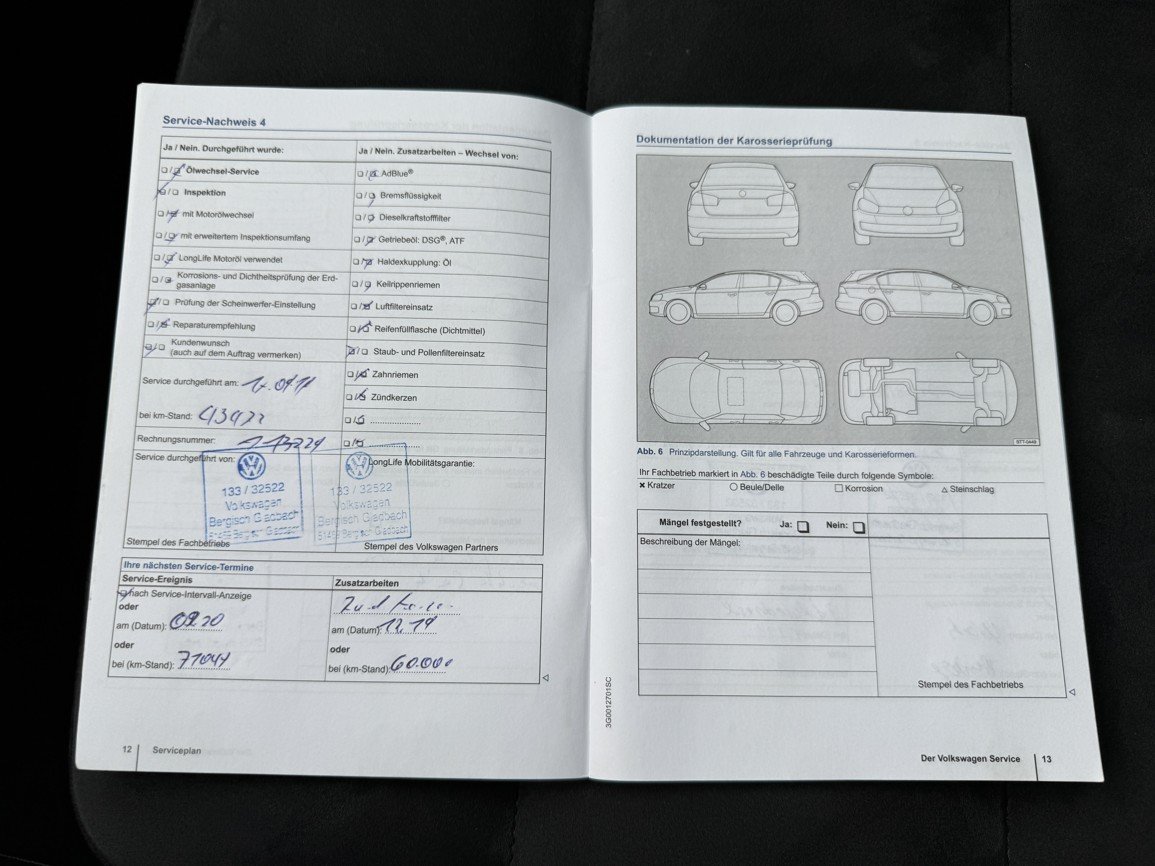 Service-Nachweis 4
Ja / Nein. Durchgeführt wurde:
Ölwechsel-Service
Inspektion
mit Motorölwechsel
mit erweitertem Inspektionsumfang
LongLife Motoröl verwendet
Korrosions- und Dichtheitsprüfung der Erd-
gasanlage
Prüfung der Scheinwerfer-Einstellung
Reparaturempfehlung
Kundenwunsch
(auch auf dem Auftrag vermerken)
Service durchgeführt am:
bei km-Stand:
Rechnungsnummer:
Service durchgeführt von:
133 / 32522
Volkswagen
Bergisch Gladbach
Stempel des Fachbetriebs
Ja / Nein. Zusatzarbeiten – Wechsel von:
AdBlue®
Bremsflüssigkeit
Dieselkraftstofffilter
Getriebeöl: DSG®, ATF
Haldexkupplung: Öl
Keilrippenriemen
Luftfiltereinsatz
Reifenfüllflasche (Dichtmittel)
Staub- und Pollenfiltereinsatz
Zahnriemen
Zündkerzen
LongLife Mobilitätsgarantie:
133 / 32522
Volkswagen
Bergisch Gladbach
Stempel des Volkswagen Partners
Ihre nächsten Service-Termine
Service-Ereignis
nach Service-Intervall-Anzeige
oder
am (Datum): 09.20
oder
bei (km-Stand):
Zusatzarbeiten
am (Datum): 12.19
oder
bei (km-Stand): 60.000
12 Serviceplan
Dokumentation der Karosserieprüfung
STT-0449
Abb. 6 Prinzipdarstellung. Gilt für alle Fahrzeuge und Karosserieformen.
Ihr Fachbetrieb markiert in Abb. 6 beschädigte Teile durch folgende Symbole:
✖ Kratzer ○ Beule/Delle □ Korrosion △ Steinschlag
Mängel festgestellt? Ja: Nein:
Beschreibung der Mängel:
Stempel des Fachbetriebs
3G0012701SC
Der Volkswagen Service 13